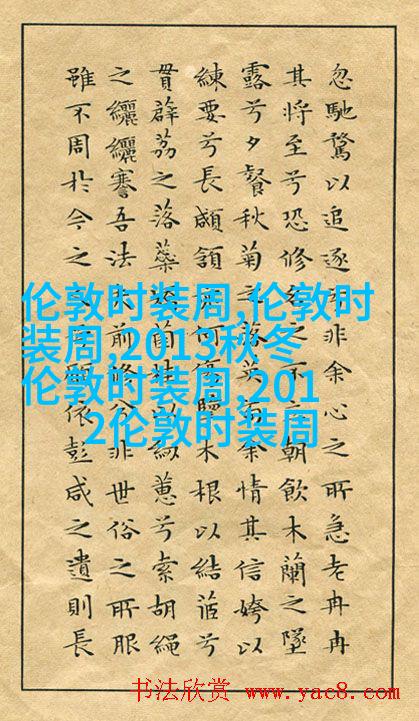 忽馳騖以追逐非余心之所急老冉冉
其將至兮恐修之不朝飲木蘭之墜
露兮夕餐秋菊落英余情其信姱以
練要兮長顑頷何傷擥木根以結茝兮
貫薜荔之落蘂菌以紉蕙兮索胡繩
之纚纚謇吾法前修兮非世俗之所服
雖不周於今之願依彭咸之遺則長
伦敦时装周,伦敦时
装周,2013秋冬
伦敦时装周,201
2伦敦时装周
书法欣赏 www.yac8.com